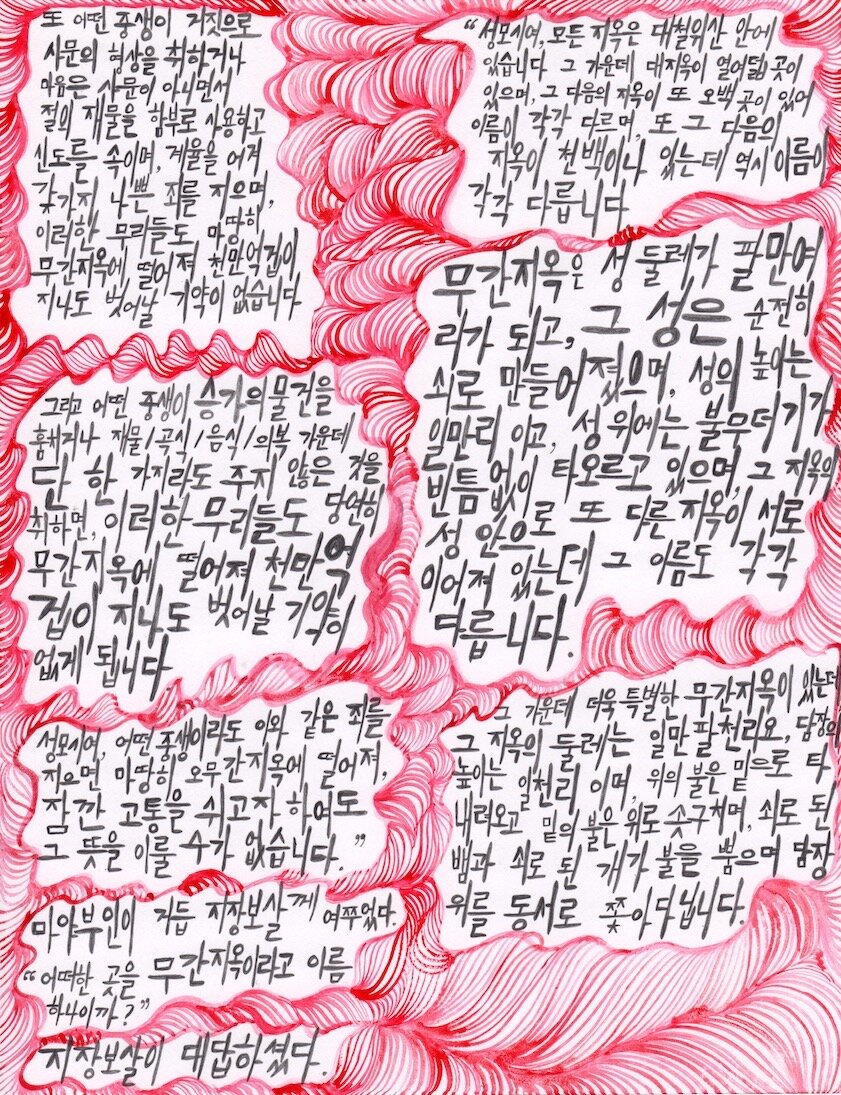 또 어떤 중생이 거짓으로
사문의 형상을 취하거나
마음은 사문이 아니면서
절의 재물을 함부로 사용하고
신도들을 속이며, 계율을 어겨
갖가지 나쁜 죄를 지으며,
이러한 무리들도 마땅히
무간지옥에 떨어져 천만억겁이
지나도 벗어날 기약이 없습니다
그리고 어떤 중생이 승가의 물건을
훔치거나 재물/곡식/음식/의복 가운데
단 한 가지라도 주지 않은 것을
취하면, 이러한 무리들도 당연히
무간지옥에 떨어져 천만억
겁이 지나도 벗어날 기약이
없게 됩니다
성모시여, 어떤 중생이라도 이와 같은 죄를
지으면 마땅히 오무간지옥에 떨어져,
잠깐 고통을 쉬고자 하여도
그 뜻을 이룰 수가 없습니다. ”
마야부인이 거듭 지장보살께 여쭈었다.
“어떠한 곳을 무간지옥이라고 이름
하나이까?”
지장보살이 대답하셨다.
“성모시여, 모든 지옥은 대철위산 안에
있습니다 그 가운데 대지옥이 열여덟 곳이
있으며, 그 다음의 지옥이 또 오백 곳이 있어
이름이 각각 다르며, 또 그 다음의
지옥이 천백이나 있는데 역시 이름이
각각 다릅니다
무간지옥은 성 둘레가 팔만여
리가 되고, 그 성은 순전히
쇠로 만들어졌으며, 성의 높이는
일만리 이고, 성 위에는 불무더기가
빈틈없이 타오르고 있으며, 그 지옥의
성 안으로 또 다른 지옥이 서로
이어져 있는데 그 이름도 각각
다릅니다.
그 가운데 더욱 특별한 무간지옥이 있는데
그 지옥의 둘레는 일만 팔천리요, 담장의
높이는 일천리 이며, 위의 불은 밑으로 타
내려오고 밑의 불은 위로 솟구치며, 쇠로 된
뱀과 쇠로 된 개가 불을 뿜으며 담장
위를 동서로 쫓아다닙니다.